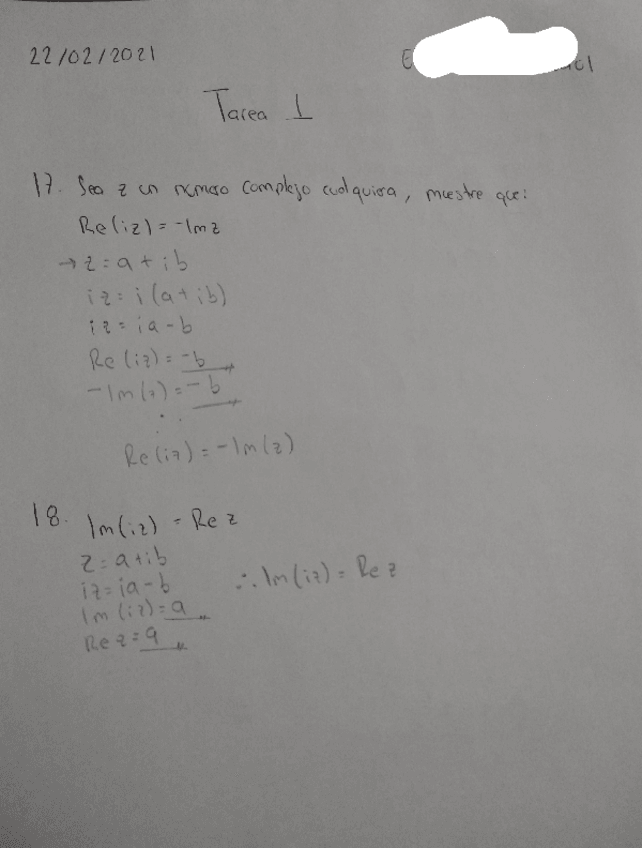 22/02/2021
Tarea 1
17. Sea z un número complejo cualquiera, muestre que:
Re(iz) = -Im z
→ z = a + ib
iz = i(a + ib)
iz = ia - b
Re(iz) = -b
-Im(z) = -b
∴
Re(iz) = -Im(z)
18. Im(iz) = Re z
z = a + ib
iz = ia - b
∴ Im(iz) = Re z
Im(iz) = a
Re z = a